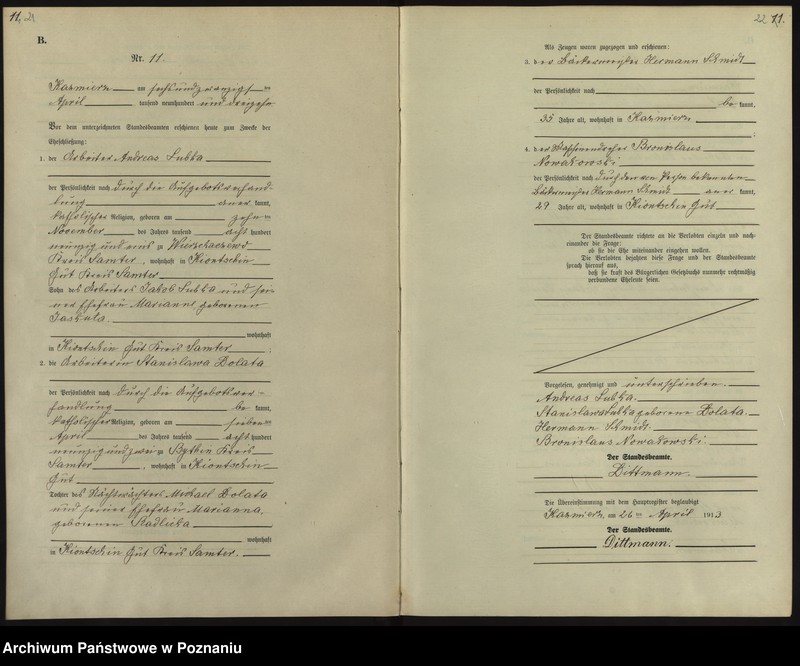 11. 21
B.
Nr. 11.
Kazmierz am sechsundzwanzigsten
April tausend neunhundert und dreizehn
Vor dem unterzeichneten Standesbeamten erschienen heute zum Zwecke der
Eheschließung:
1. der Arbeiter Andreas Lubka
der Persönlichkeit nach durch die Aufgebotsverhand-
lung anerkannt,
katholischer Religion, geboren am zehnten
November des Jahres tausend acht hundert
neunzig und eins zu
Kreis Samter, wohnhaft in Kiontschin
Gut Kreis Samter
Sohn des Arbeiters Jakob Lubka und sei-
ner Ehefrau Marianna, geborenen
wohnhaft
in Kiontschin Gut Kreis Samter;
2. die Arbeiterin Stanislawa Dolata
der Persönlichkeit nach durch die Aufgebotsver-
handlung be kannt,
katholischer Religion, geboren am siebenten
April des Jahres tausend acht hundert
neunzig und zwei zu Bythin Kreis
Samter, wohnhaft in Kiontschin
Gut
Tochter des Nachtwächters Michael Dolata
und seiner Ehefrau Marianna,
geborenen Stadlicka
wohnhaft
in Kiontschin Gut Kreis Samter.
22 11.
Als Zeugen waren zugezogen und erschienen:
3. der Bäckermeister Hermann Schmidt
der Persönlichkeit nach
be kannt,
35 Jahre alt, wohnhaft in Kazmierz
;
4. der Bronislaus
Nowakowski
der Persönlichkeit nach durch den von Person bekannten
Bäckermeister Hermann Schmidt anerkannt,
29 Jahre alt, wohnhaft in Kiontschin Gut
Der Standesbeamte richtete an die Verlobten einzeln und nach-
einander die Frage:
ob sie die Ehe miteinander eingehen wollen.
Die Verlobten bejahten diese Frage und der Standesbeamte
sprach hierauf aus,
daß sie kraft des Bürgerlichen Gesetzbuchs nunmehr rechtmäßig
verbundene Eheleute seien.
Vorgelesen, genehmigt und unterschrieben.
Andreas Lubka.
Stanislawa Lubka geborene Dolata.
Hermann Schmidt.
Bronislaus Nowakowski.
Der Standesbeamte.
Dittmann.
Die Übereinstimmung mit dem Hauptregister beglaubigt
Kazmierz, am 26ten April 1913
Der Standesbeamte.
Dittmann.
Archiwum Państwowe w Poznaniu